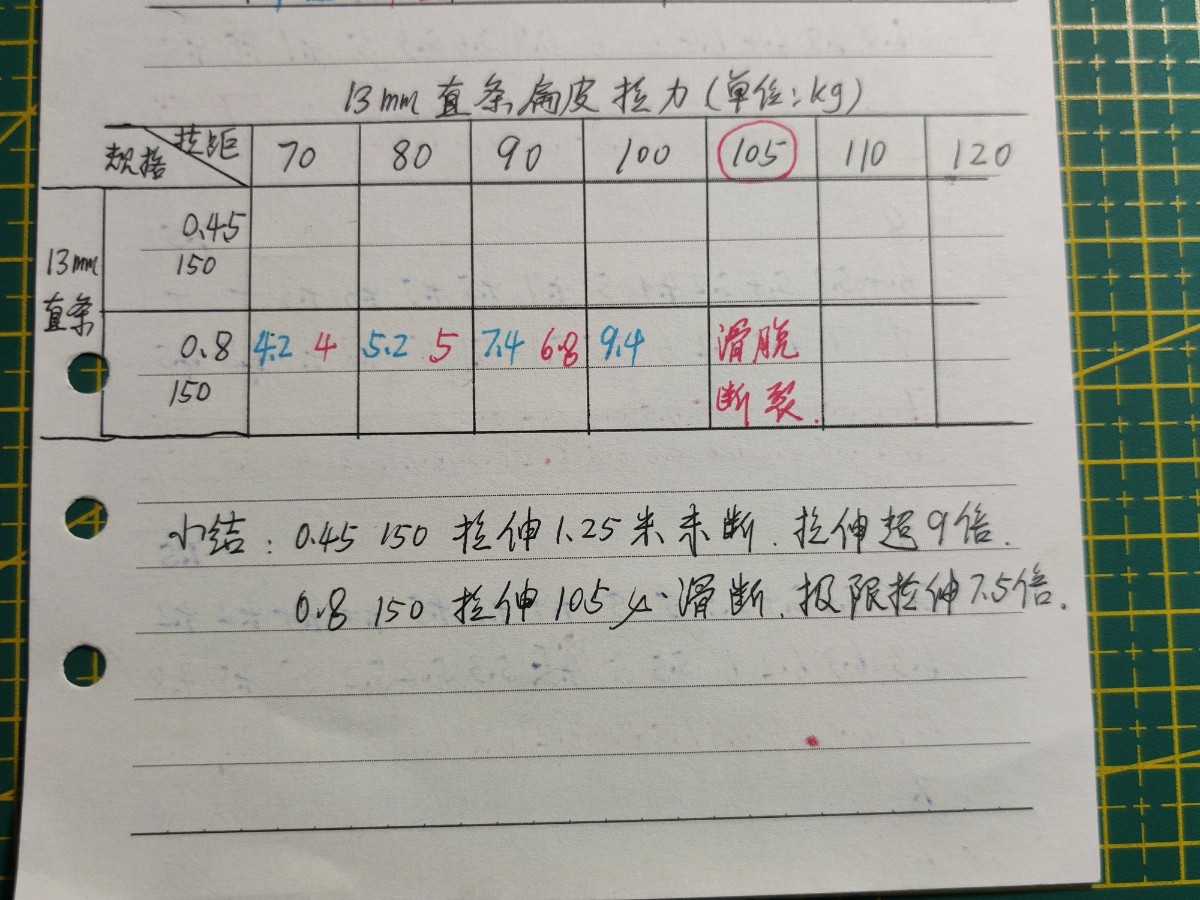 13mm直条扁皮拉力(单位:kg)
拉距 70 80 90 100 105 110 120
规格
0.45
13mm 150
直条
0.8 4.2 4 5.2 5 7.4 6.8 9.4 滑脱
150 断裂.
小结: 0.45 150 拉伸1.25米未断. 拉伸超9倍.
0.8 150 拉伸105 滑断. 极限拉伸7.5倍.